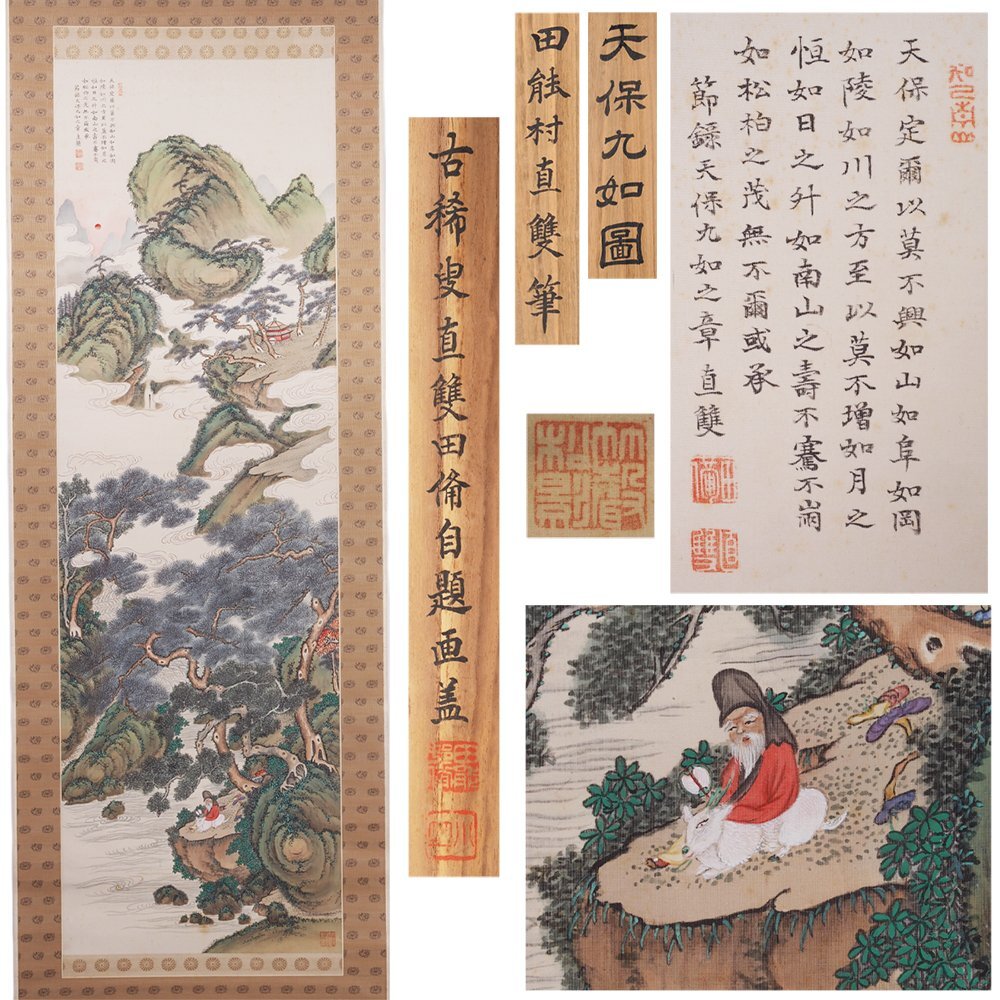 天保九如圖
田能村直雙筆
古稀叟直雙田自題画盖
天保定爾以莫不興如山如阜如岡
如陵如川之方至以莫不增如月之
恒如日之升如南山之壽不騫不崩
如松柏之茂無不爾或承
節錄天保九如之章直雙